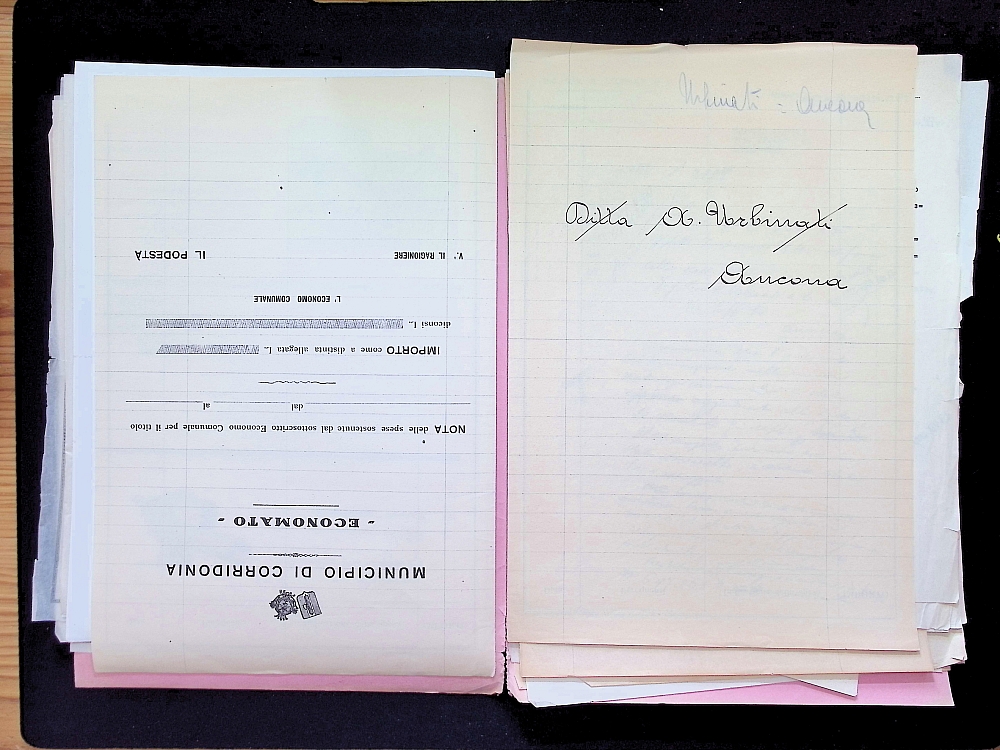 MUNICIPIO DI CORRIDONIA
- ECONOMATO -
NOTA delle spese sostenute dal sottoscritto Economo Comunale per il titolo
dal al
IMPORTO come a distinta allegata L.
diconsi L.
L' ECONOMO COMUNALE
V.° IL RAGIONIERE IL PODESTÀ
Urbinati - Ancona
Ditta A. Urbinati
Ancona